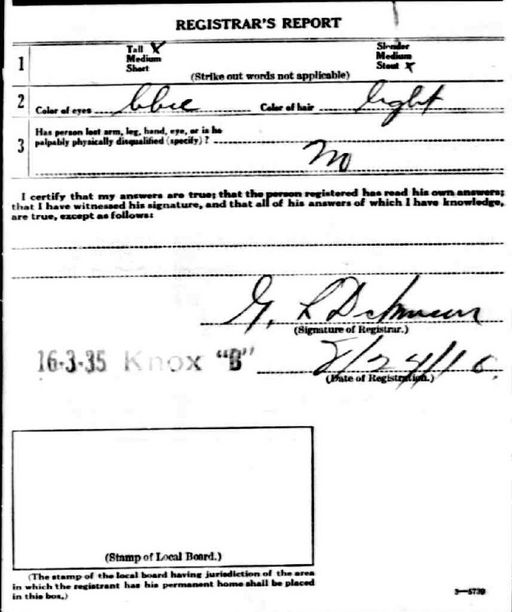 REGISTRAR'S REPORT
1
Tall X
Medium
Short
Slender
Medium
Stout X
(Strike out words not applicable)
2 Color of eyes blue Color of hair light
3 Has person lost arm, leg, hand, eye, or is he
palpably physically disqualified (specify)?
No
I certify that my answers are true; that the person registered has read his own answers;
that I have witnessed his signature, and that all of his answers of which I have knowledge,
are true, except as follows:
G. L.
(Signature of Registrar.)
16-3-35 Knox "B"
(Date of Registration.)
(Stamp of Local Board.)
(The stamp of the local board having jurisdiction of the area
in which the registrant has his permanent home shall be placed
in this box.)
3—5739